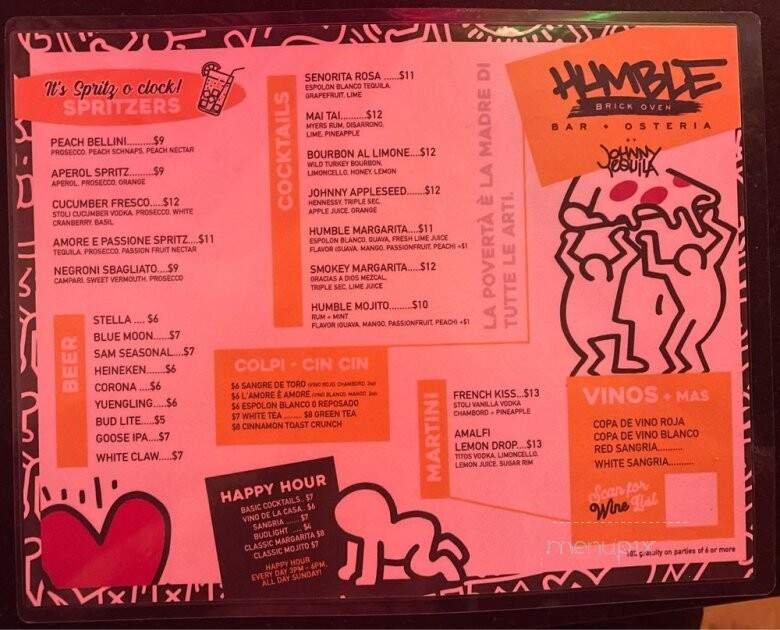 It's Spritz o clock!
SPRITZERS
PEACH BELLINI.........$9
PROSECCO, PEACH SCHNAPS, PEACH NECTAR
APEROL SPRITZ.........$9
APEROL, PROSECCO, ORANGE
CUCUMBER FRESCO....$12
STOLI CUCUMBER VODKA, PROSECCO, WHITE
CRANBERRY, BASIL
AMORE E PASSIONE SPRITZ....$11
TEQUILA, PROSECCO, PASSION FRUIT NECTAR
NEGRONI SBAGLIATO....$9
CAMPARI, SWEET VERMOUTH, PROSECCO
BEER
STELLA .... $6
BLUE MOON......$7
SAM SEASONAL....$7
HEINEKEN.......$6
CORONA ....$6
YUENGLING.....$6
BUD LITE.....$5
GOOSE IPA....$7
WHITE CLAW....$7
COCKTAILS
SENORITA ROSA ......$11
ESPOLON BLANCO TEQUILA,
GRAPEFRUIT, LIME
MAI TAI..........$12
MYERS RUM, DISARRONO,
LIME, PINEAPPLE
BOURBON AL LIMONE....$12
WILD TURKEY BOURBON,
LIMONCELLO, HONEY, LEMON
JOHNNY APPLESEED.......$12
HENNESSY, TRIPLE SEC,
APPLE JUICE, ORANGE
HUMBLE MARGARITA....$11
ESPOLON BLANCO, GUAVA, FRESH LIME JUICE
FLAVOR (GUAVA, MANGO, PASSIONFRUIT, PEACH) +$1
SMOKEY MARGARITA.....$12
GRACIAS A DIOS MEZCAL,
TRIPLE SEC, LIME JUICE
HUMBLE MOJITO........$10
RUM + MINT
FLAVOR (GUAVA, MANGO, PASSIONFRUIT, PEACH) +$1
LA POVERTÀ È LA MADRE DI
TUTTE LE ARTI.
HUMBLE
BRICK OVEN
BAR + OSTERIA
BY
JOHNNY
TEQUILA
COLPI - CIN CIN
$6 SANGRE DE TORO (VINO ROJO, CHAMBORD, 2oz)
$6 L'AMORE È AMORE (VINO BLANCO, MANGO, 2oz)
$6 ESPOLON BLANCO O REPOSADO
$7 WHITE TEA ........ $8 GREEN TEA
$8 CINNAMON TOAST CRUNCH
MARTINI
FRENCH KISS...$13
STOLI VANILLA VODKA
CHAMBORD + PINEAPPLE
AMALFI
LEMON DROP....$13
TITOS VODKA, LIMONCELLO,
LEMON JUICE, SUGAR RIM
VINOS + MAS
COPA DE VINO ROJA
COPA DE VINO BLANCO
RED SANGRIA.........
WHITE SANGRIA.........
Scan for
Wine List
HAPPY HOUR
BASIC COCKTAILS.. $7
VINO DE LA CASA.. $6
SANGRIA ...... $7
BUDLIGHT ..... $4
CLASSIC MARGARITA $8
CLASSIC MOJITO $7
HAPPY HOUR
EVERY DAY 3PM - 6PM,
ALL DAY SUNDAY!
menupix
18% gratuity on parties of 6 or more